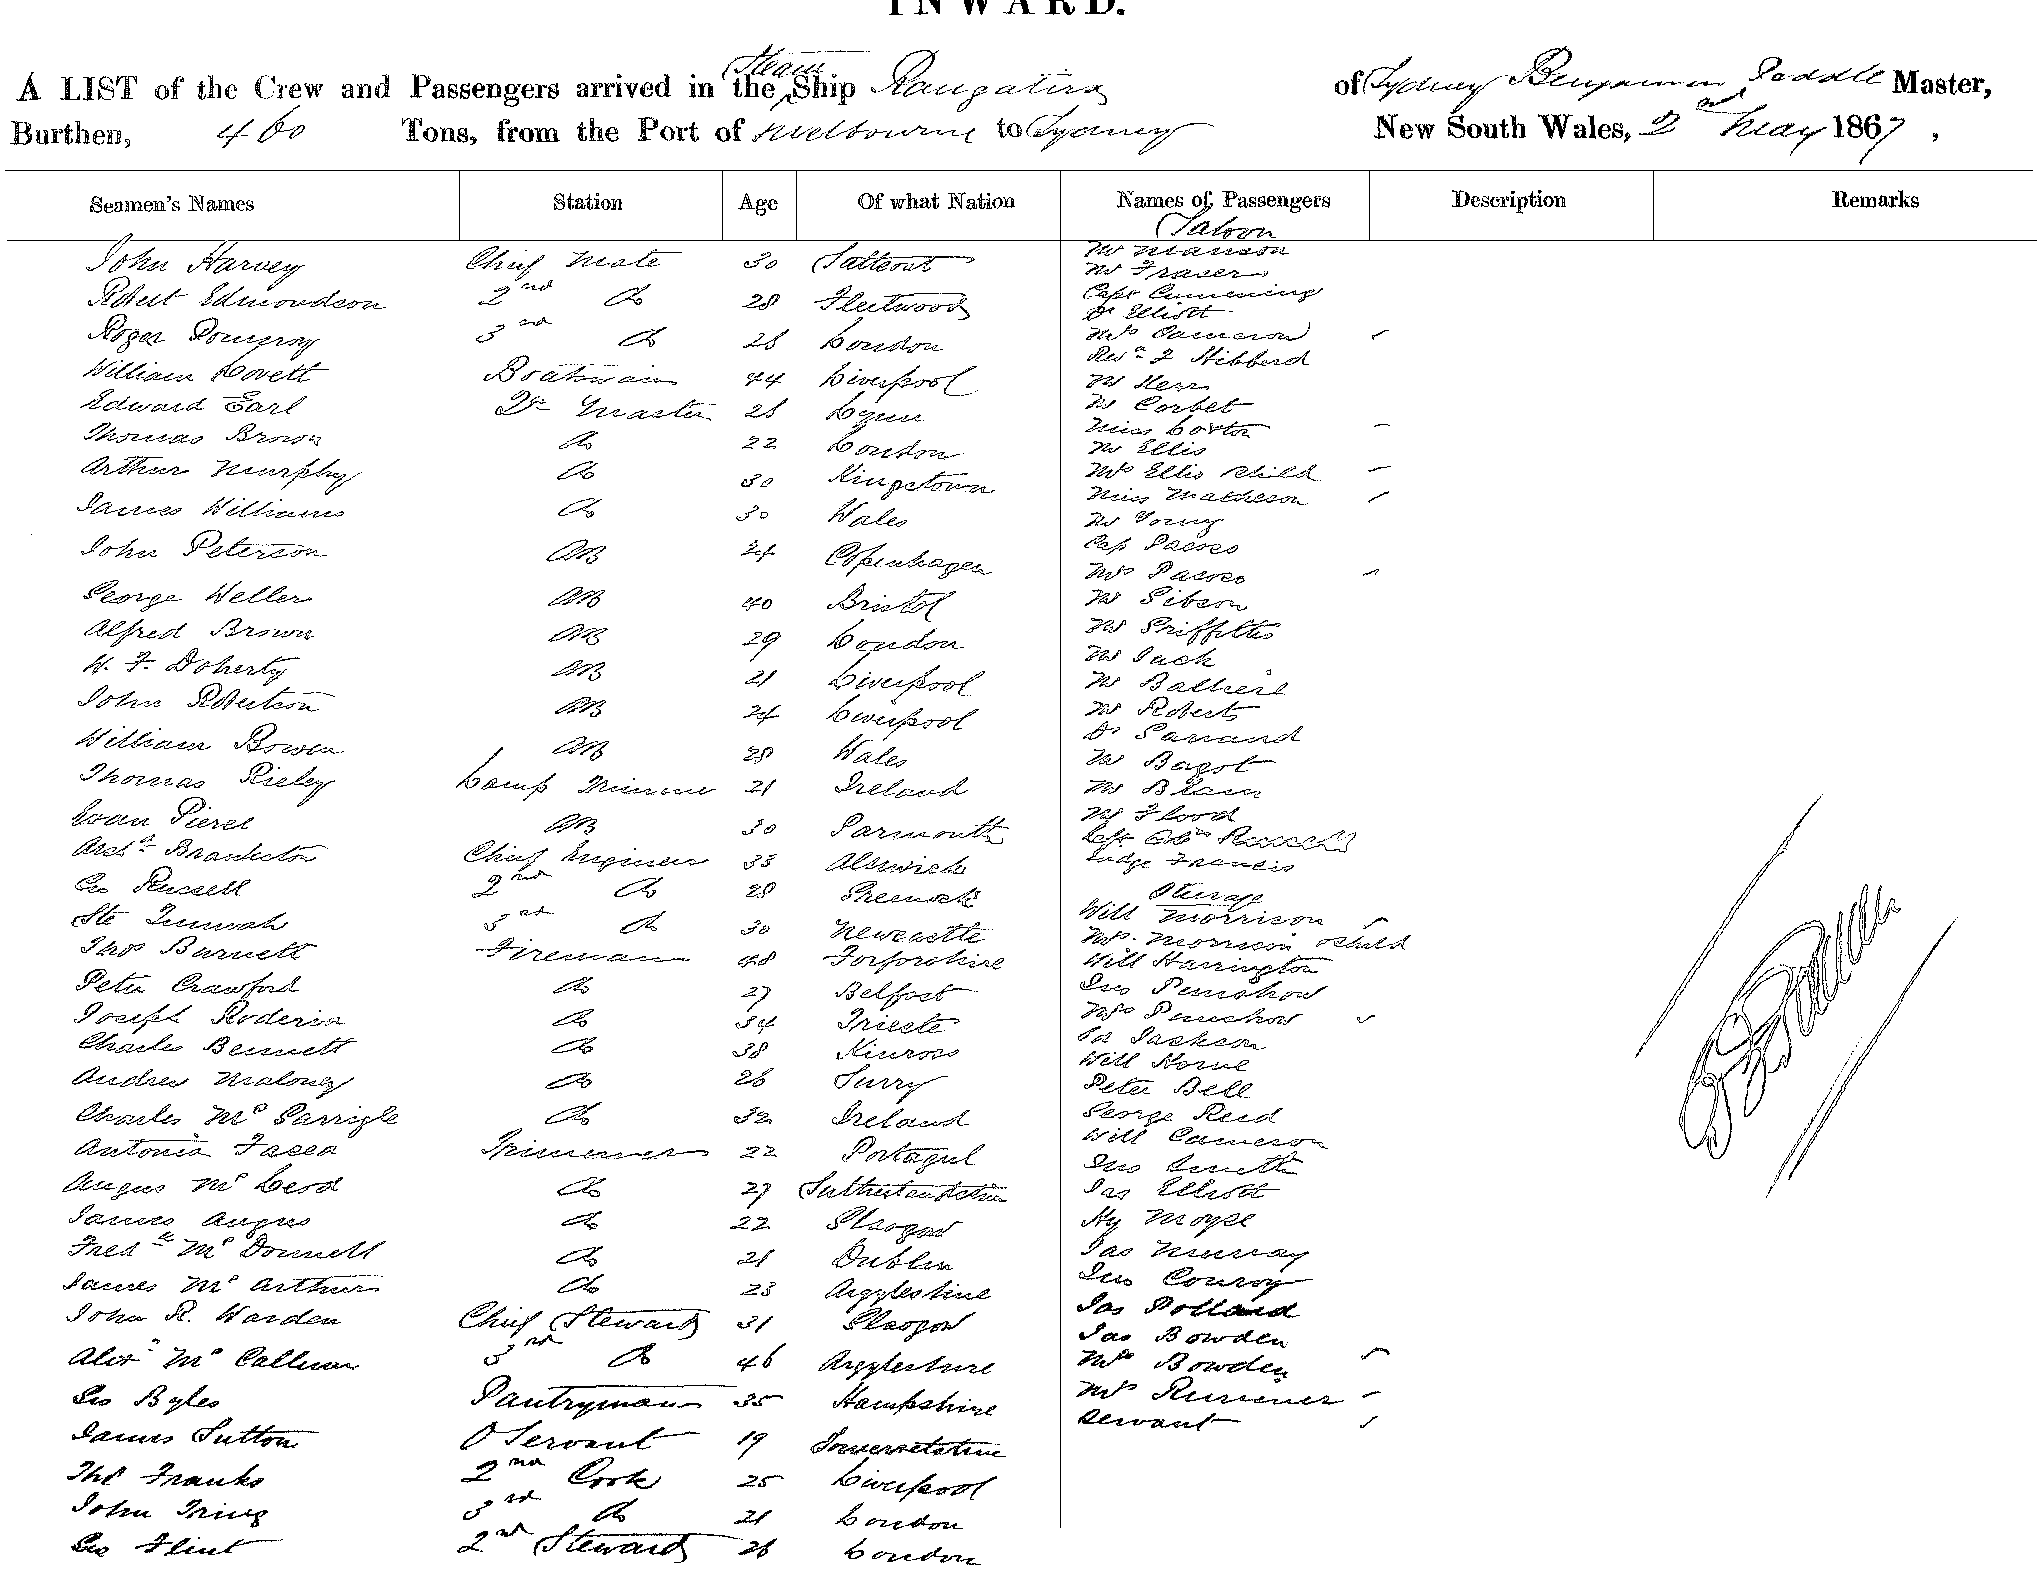 INWARD.
A LIST of the Crew and Passengers arrived in the Steam Ship Rangatira of Sydney Benjamin Master,
Burthen, 460 Tons, from the Port of Melbourne to Sydney New South Wales, 2nd May 1867,
Seamen's Names Station Age Of what Nation Names of Passengers Description Remarks
Saloon
John Harvey Chief Mate 30 Saltcoat Mr Manson
Mr Fraser
Robert Edmondson 2nd Do 28 Fleetwood Capt Cumming
Dr Elliott
Roger Pomeroy 3rd Do 28 London Mrs Cameron
Revd J Hibberd
William Lovett Boatswain 44 Liverpool Mr Kerr
Edward Earl Qr Master 28 Lynn Mr Corbet
Miss
Thomas Brown Do 22 London Mr Ellis
Arthur Murphy Do 30 Kingstown Mrs Ellis & child
Miss Matheson
James Williams Do 30 Wales Mr Young
John Peterson AB 24 Copenhagen Cap Pascoe
Mrs Pascoe
George Weller AB 40 Bristol Mr Gibson
Alfred Brown AB 29 London Mr Griffiths
W. F. Doherty AB 21 Liverpool Mr Jack
Mr
John Robertson AB 24 Liverpool Mr Roberts
Dr Garrand
William Bowen AB 28 Wales Mr Bagot
Thomas Rieley Lamp Trimmer 21 Ireland Mr Blain
Mr Flood
Evan AB 30 Yarmouth Russell
Archd Chief Engineer 33 Alnwick Judge Francis
Geo Russell 2nd Do 28 Greenock Steerage
Will Morrison
3rd Do 30 Newcastle Mrs Morrison & child
Thos Burnett Fireman 48 Forfarshire Will Harrington
Peter Crawford Do 27 Belfast Jno Penshow
Joseph Roderin Do 34 Trieste Mrs Penshow
Jackson
Charles Bennett Do 38 Kinross Will Horne
Andrew Maloney Do 26 Surry Peter Bell
Charles McGarrigle Do 32 Ireland George Reid
Will Cameron
Antonio Trimmer 22 Portagul Jno Smith
Angus McLeod Do 27 Sutherlandshire Jas Elliott
James Angus Do 22 Glasgow Hy Moyse
Fredk McDonnell Do 21 Dublin Jas Murray
James McArthur Do 23 Argyleshire Jno Conroy
John R. Warden Chief Steward 31 Glasgow Jas Polland
Jas Bowden
Alexr McCallum 3rd Do 46 Argyleshire Mrs Bowden
Geo Byles Pantryman 35 Hampshire Mrs
servant
James Sutton O Servant 19 Somersetshire
Thos Franks 2nd Cook 25 Liverpool
John 3rd Do 21 London
Geo Flint 2nd Steward 26 London